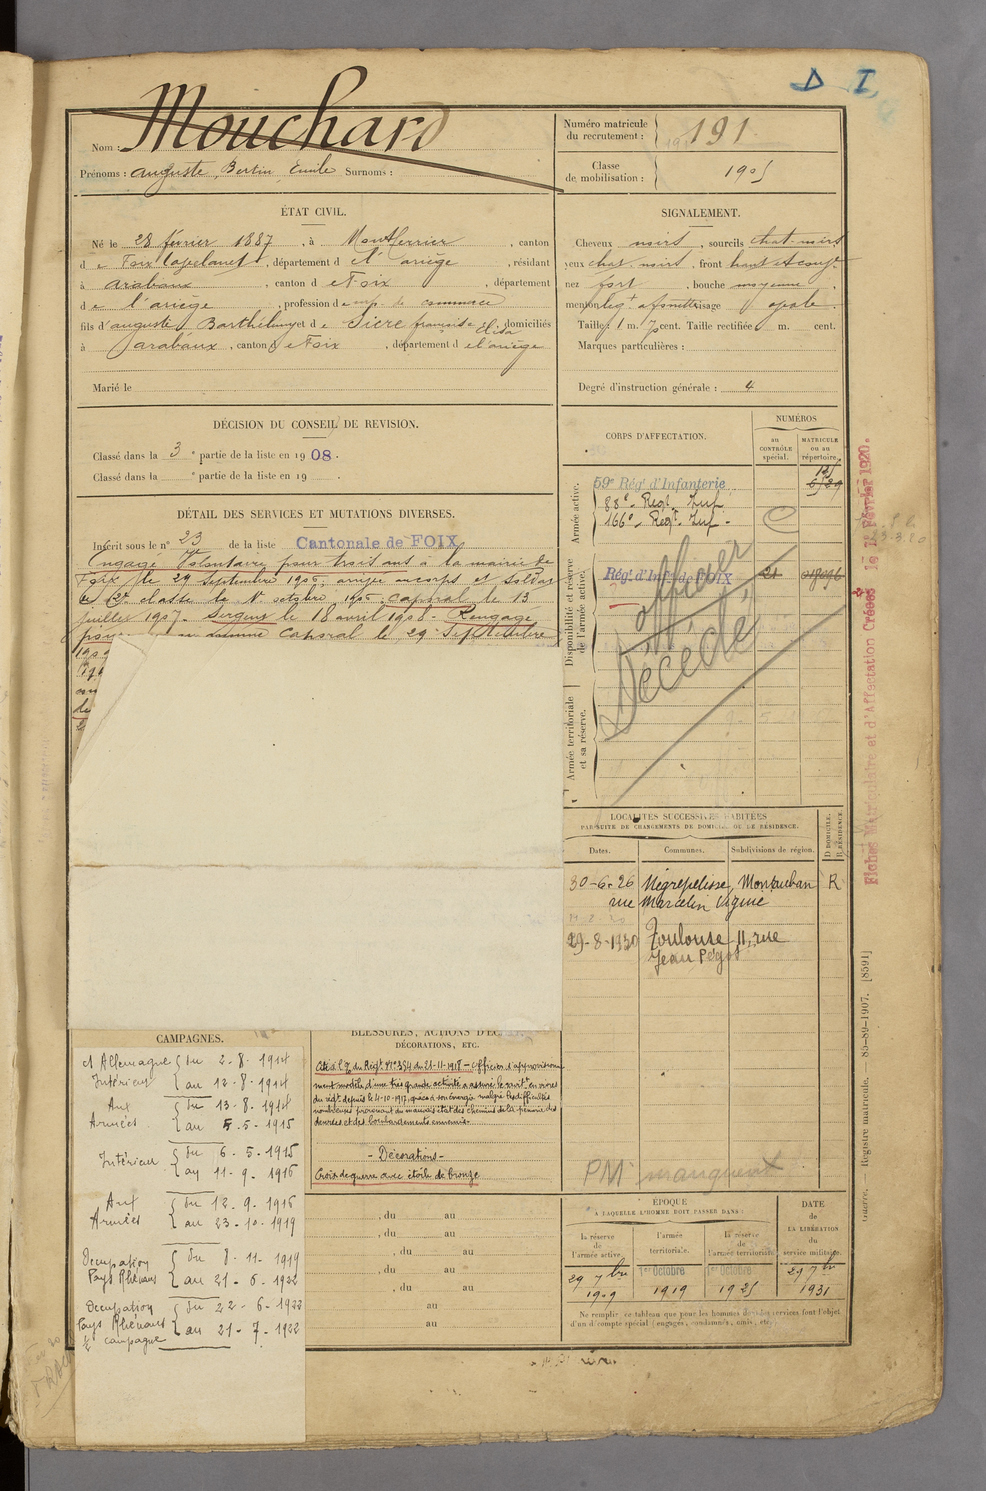 D I
Nom : Mouchard
Prénoms : Auguste, Bertin, Emile Surnoms :
Numéro matricule du recrutement : 191
Classe de mobilisation : 1905
ÉTAT CIVIL.
Né le 28 février 1887, à Montferrier, canton
de Foix Lavelanet, département d e l'ariège, résidant
à arabaux, canton d e Foix, département
de l'ariège, profession d emp. de commerce
fils d'auguste Barthélemy et de Sicre françoise Elisa domiciliés
à arabaux, canton de Foix, département d e l'ariège
Marié le
SIGNALEMENT.
Cheveux noirs, sourcils chat. noirs
yeux chat. noirs, front haut et
nez fort, bouche moyenne,
menton visage ovale
Taille : 1 m. cent. Taille rectifiée m. cent.
Marques particulières :
Degré d'instruction générale : 4
DÉCISION DU CONSEIL DE REVISION.
Classé dans la 3e partie de la liste en 1908.
Classé dans la e partie de la liste en 19 .
DÉTAIL DES SERVICES ET MUTATIONS DIVERSES.
Inscrit sous le n° 23 de la liste Cantonale de FOIX
Engagé Volontaire pour trois ans à la mairie de
Foix le 29 Septembre 1905, arrivé au corps et Soldat
de 2e classe le 1er octobre 1905, caporal le 13
juillet 1907. Sergent le 18 avril 1908. Rengagé
comme caporal le 29 Septembre
1909
CORPS D'AFFECTATION.
NUMÉROS
au CONTRÔLE spécial.
MATRICULE ou au répertoire.
Armée active.
59e Rég. d'Infanterie
88e Regt. Inf.
166e Regt. Inf.
Disponibilité et réserve de l'armée active.
Rég. d'Inf. de FOIX 21
officier
Décédé
Armée territoriale et sa réserve.
LOCALITÉS SUCCESSIVES HABITÉES
PAR SUITE DE CHANGEMENTS DE DOMICILE OU DE RÉSIDENCE.
Dates. Communes. Subdivisions de région. D DOMICILE. R RÉSIDENCE.
30-6-26 Négrepelisse, Montauban R
rue Marcelin Vigné
29-8-1930 Toulouse 11, rue
Jean Pégot
PM manquent
CAMPAGNES.
ct Allemagne { du 2-8-1914
Intérieur { au 12-8-1914
Aux { du 13-8-1914
Armées { au 5-5-1915
Intérieur { du 6-5-1915
{ au 11-9-1916
Aux { du 12-9-1916
Armées { au 23-10-1919
Occupation { du 8-11-1919
Pays Rhénans { au 21-6-1922
Occupation { du 22-6-1922
Pays Rhénans { au 21-7-1922
½ campagne
BLESSURES, ACTIONS D'ÉCLAT,
DÉCORATIONS, ETC.
Cité à l'O. du Régt. N° 354 du 21-11-1918 – "Officier d'approvisionne
ment modèle, d'une très grande activité a assuré le ravt. en vivres
du régt. depuis le 4-10-1917, grâce à son énergie malgré les difficultés
nombreuses provenant du mauvais état des chemins de la pénurie des
denrées et des bombardements ennemis.
- Décorations -
Croix de guerre avec étoile de bronze
, du au
, du au
, du au
, du au
, du au
au
au
ÉPOQUE
A LAQUELLE L'HOMME DOIT PASSER DANS :
la réserve de l'armée active.
l'armée territoriale.
la réserve de l'armée territoriale.
DATE de LA LIBÉRATION du service militaire.
29 7bre 1909
1er Octobre 1919
1er Octobre 1925
29 7bre 1931
Ne remplir ce tableau que pour les hommes dont les services font l'objet
d'un décompte spécial (engagés, condamnés, omis, etc.)
Fiches Matriculaire et d'Affectation Créées le 1er Février 1920.
Guerre. — Registre matricule. — 85-89-1907. [8591]